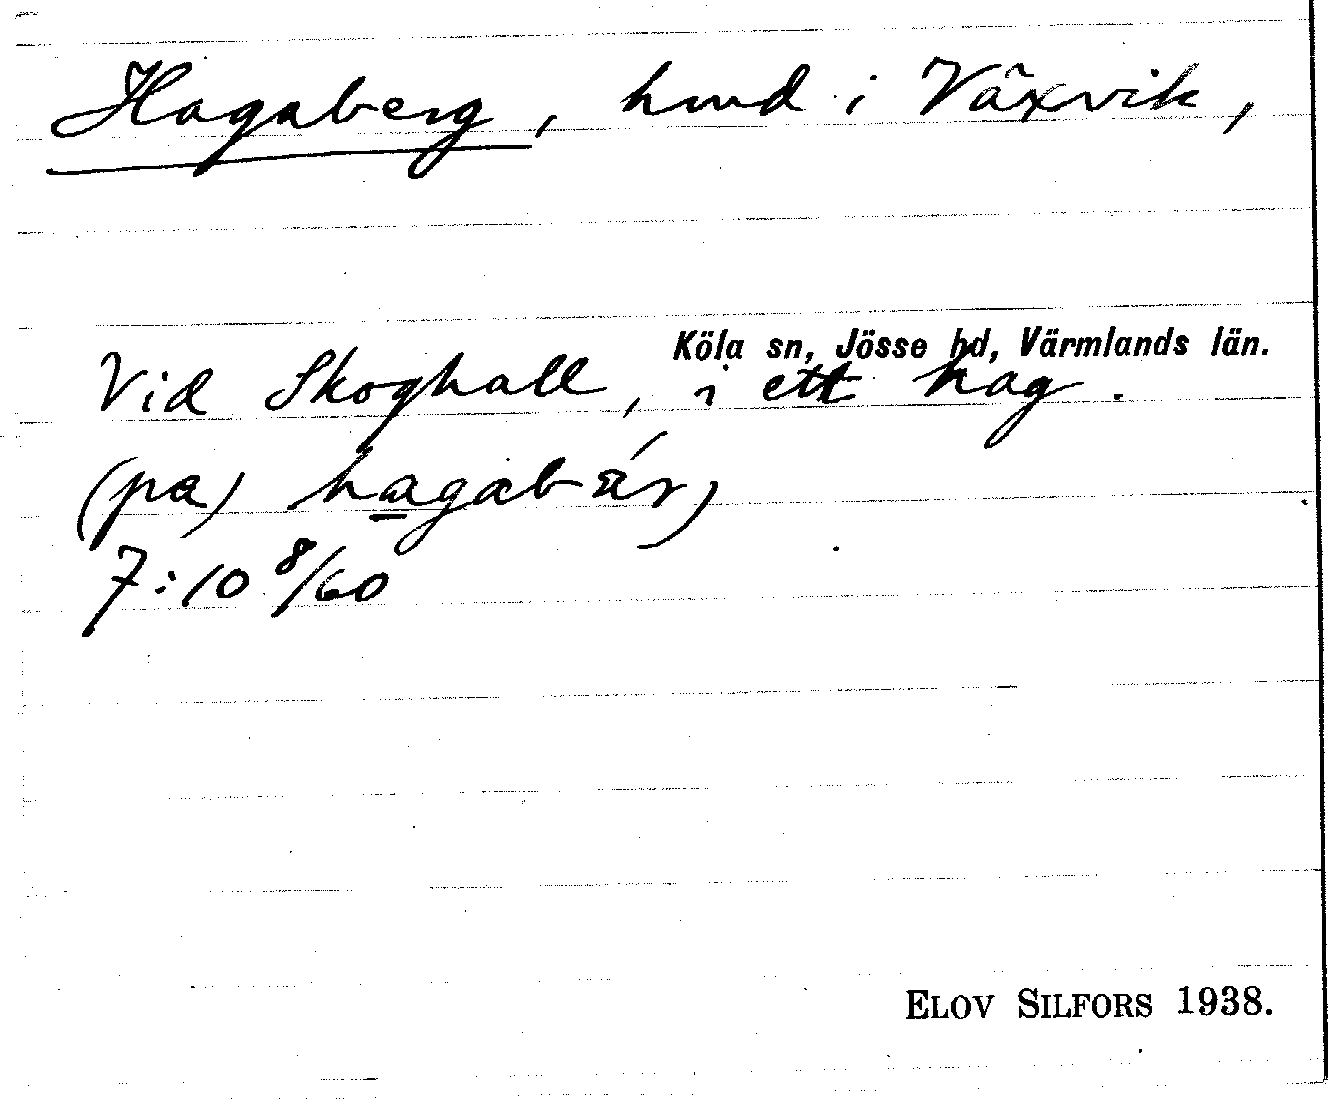 Hagaberg, hmd i Växvik,
Köla sn, Jösse hd, Värmlands län.
Vid Skoghall, i ett hag.
(pa) hagabár,
7:10 8/60
ELOV SILFORS 1938.